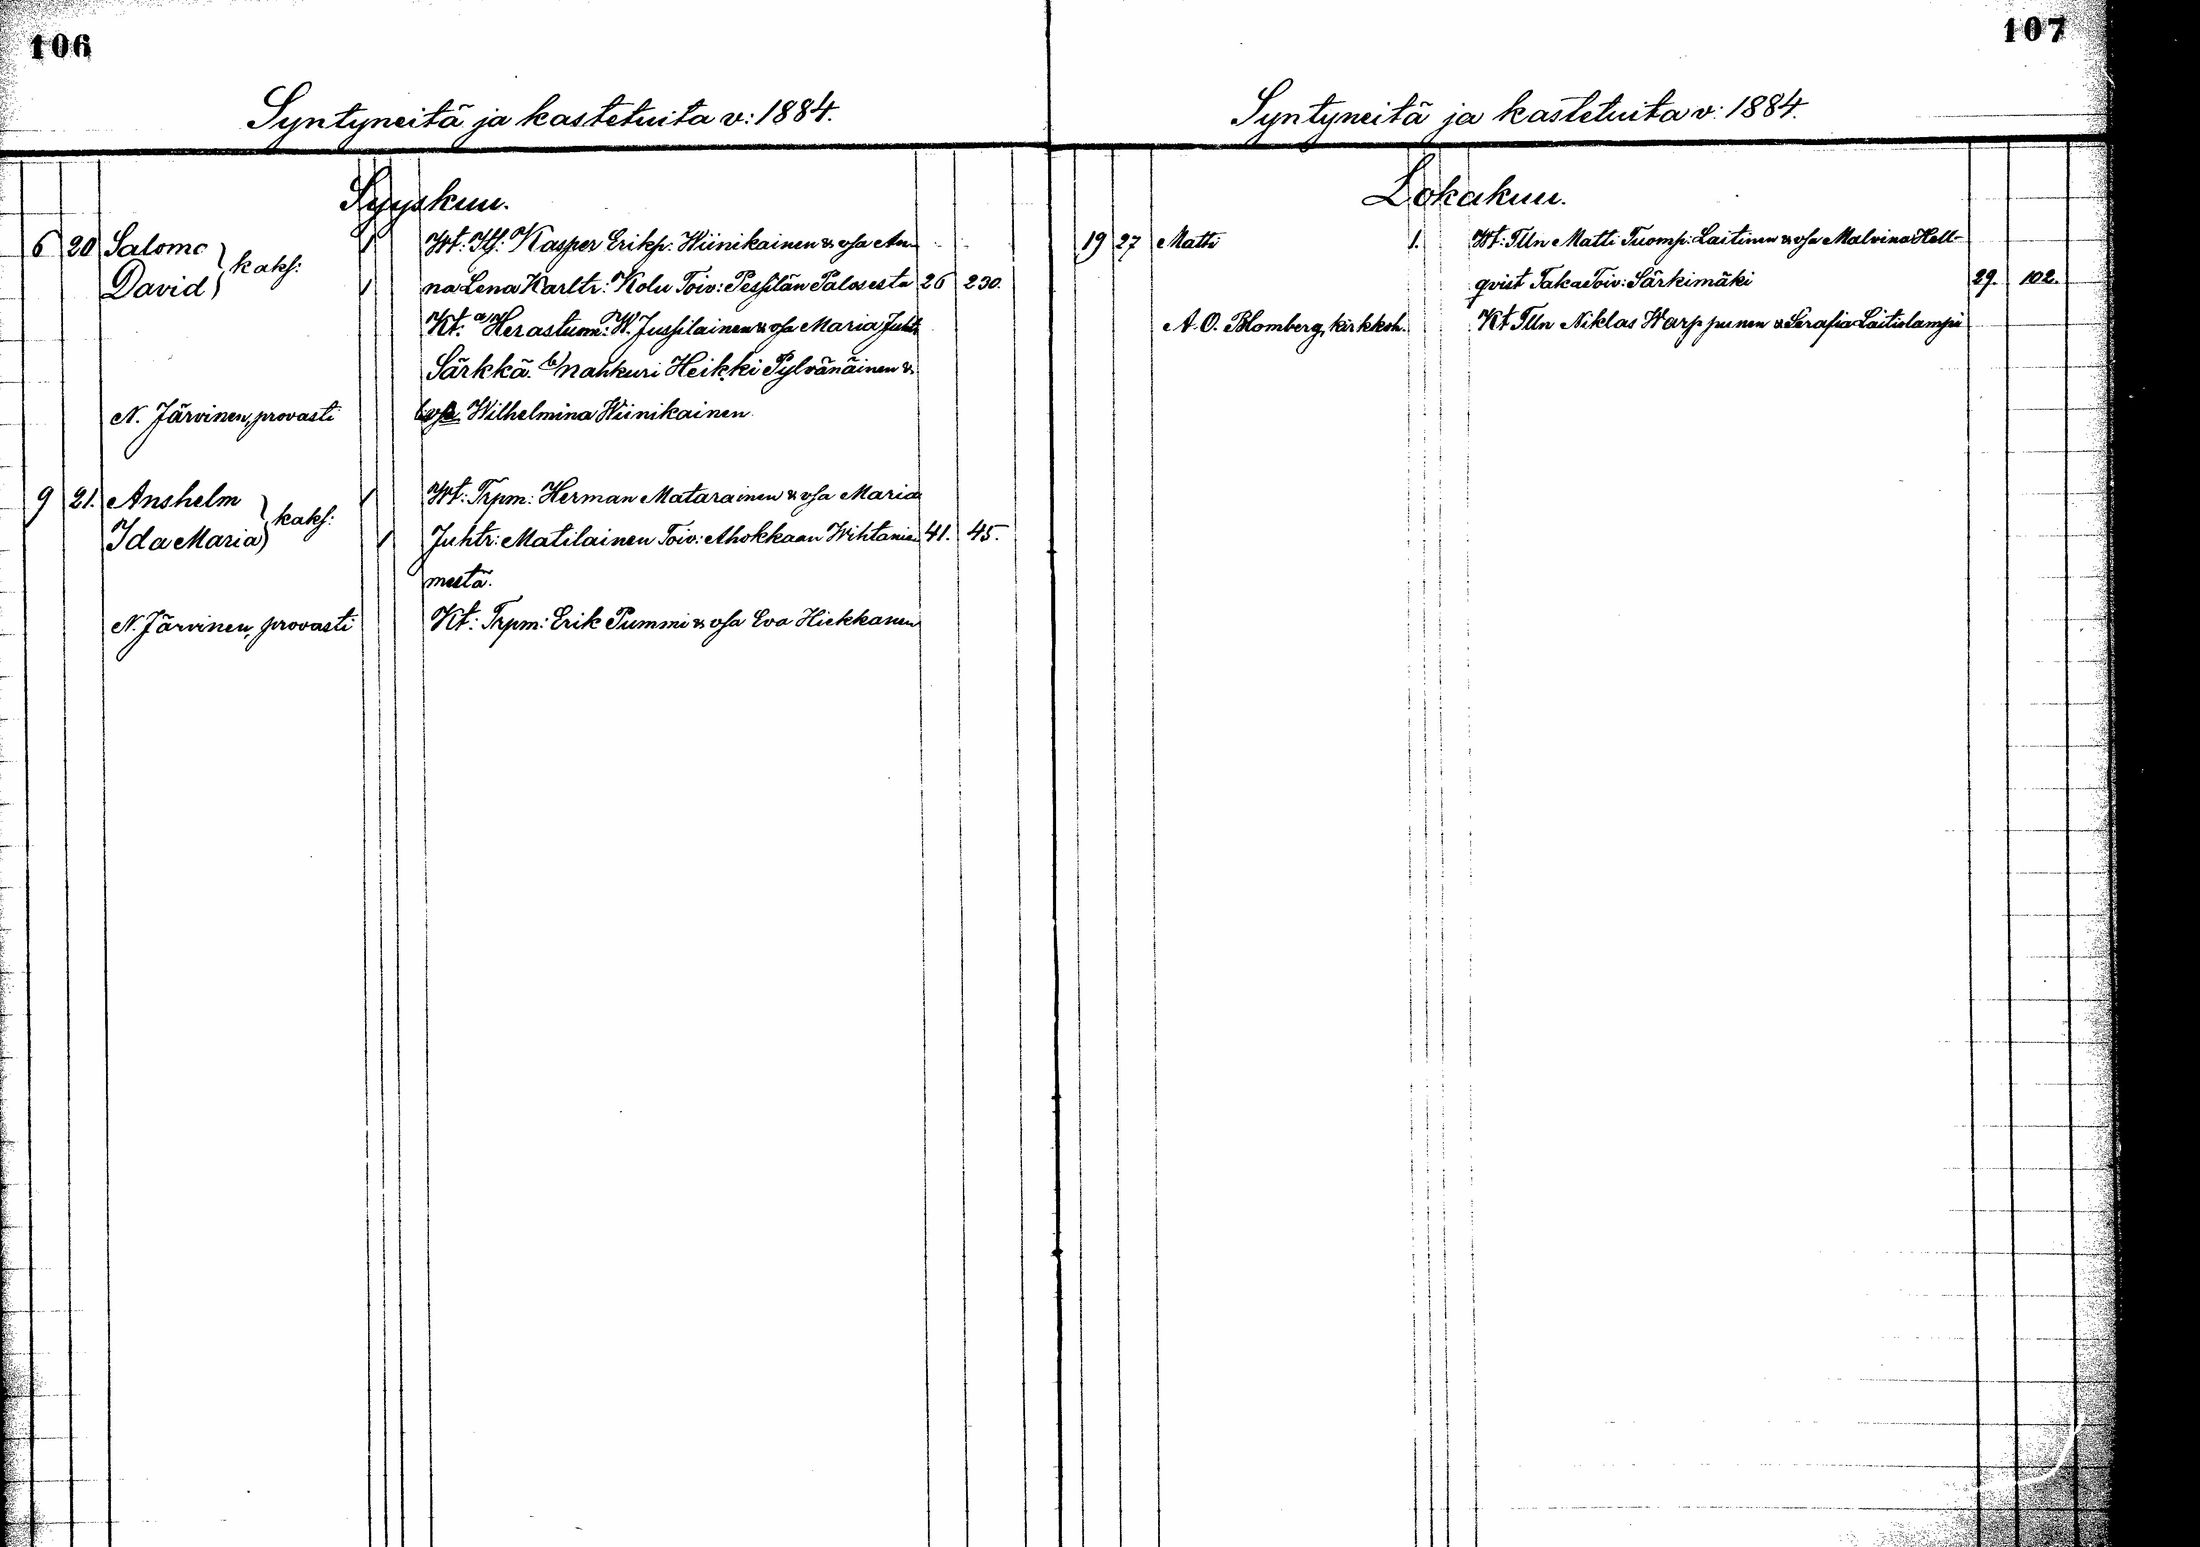 106
Syntyneitä ja kastetuita v: 1884.
Syyskuu.
6 20 Salomo } kaks: 1 Wt: Itf: Kasper Erikp: Wiinikainen & vsa An-
David 1 na Lena Karltr: Kolu Toiv: Pessilän Palosesta 26 230.
Kt. a/ Herastuom: W. Jussilainen & vsa Maria Juhtr
Särkkä. b/ nahkuri Heikki Pylvänäinen &
N. Järvinen, provasti vsa Wilhelmina Wiinikainen
9 21. Anshelm } kaks: 1 Wt: Trpm: Herman Matarainen & vsa Maria
Ida Maria 1 Juhtr: Matilainen Toiv: Ahokkaan Wihtanie- 41. 45.
mestä.
N. Järvinen, provasti Kt: Trpm: Erik Pummi & vsa Eva Hiekkanen
107
Syntyneitä ja kastetuita v: 1884.
Lokakuu.
19 27 Matti 1. Wt: Tlln Matti Tuomp: Laitinen & vsa Malvina Hell-
qvist Taka Toiv: Särkimäki 29. 102.
A. O. Blomberg, kirkkoh. Kt Tlln Niklas Warppunen & Serafia Laitislampi